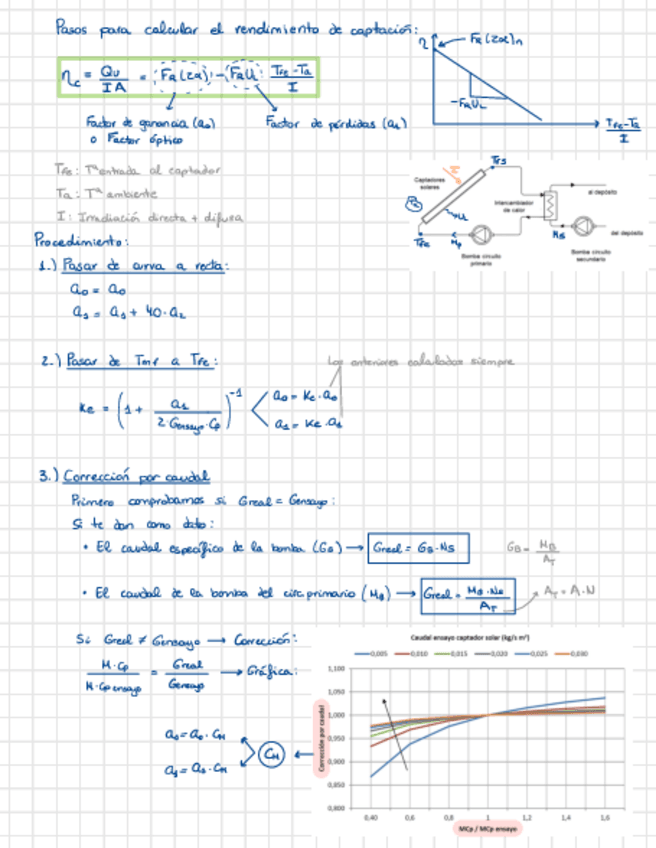 Pasos para calcular el rendimiento de captación:
η_c = Qu / IA = F_R(τα) - F_R U_L · (T_FE - T_a) / I
Factor de ganancia (a₀)
o Factor óptico
Factor de pérdidas (a₁)
η
F_R(τα)_n
-F_R U_L
(T_FE - T_a) / I
T_FE: Tª entrada al captador
Ta: Tª ambiente
I: Irradiación directa + difusa
Captadores
solares
I
T_FS
U_L
T_FE
M_B
Intercambiador
de calor
Bomba circuito
primario
al depósito
del depósito
Bomba circuito
secundario
Procedimiento:
1.) Pasar de curva a recta:
a₀ = a₀
a₁ = a₁ + 40·a₂
2.) Pasar de Tmf a T_FE:
Los anteriores calculados siempre
Kc = (1 + a₁ / (2·Gensayo·Cp))⁻¹
a₀ = Kc·a₀
a₁ = Kc·a₁
3.) Corrección por caudal
Primero comprobamos si Greal = Gensayo:
Si te dan como dato:
• El caudal específico de la bomba (G_B) → Greal = G_B·Ns
G_B = M_B / A_T
• El caudal de la bomba del circ. primario (M_B) → Greal = M_B·Ns / A_T
A_T = A·N
Si Greal ≠ Gensayo → Corrección:
M·Cp / M·Cp ensayo = Greal / Gensayo → Gráfica:
a₀ = a₀·C_M
a₁ = a₁·C_M
C_M
Caudal ensayo captador solar (kg/s m²)
0,005 0,010 0,015 0,020 0,025 0,030
Corrección por caudal
1,100
1,050
1,000
0,950
0,900
0,850
0,800
0,40 0,6 0,8 1 1,2 1,4 1,6
MCp / MCp ensayo